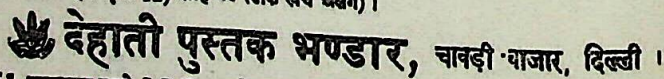 देहाती पुस्तक भण्डार, चावड़ी बाजार, दिल्ली ।